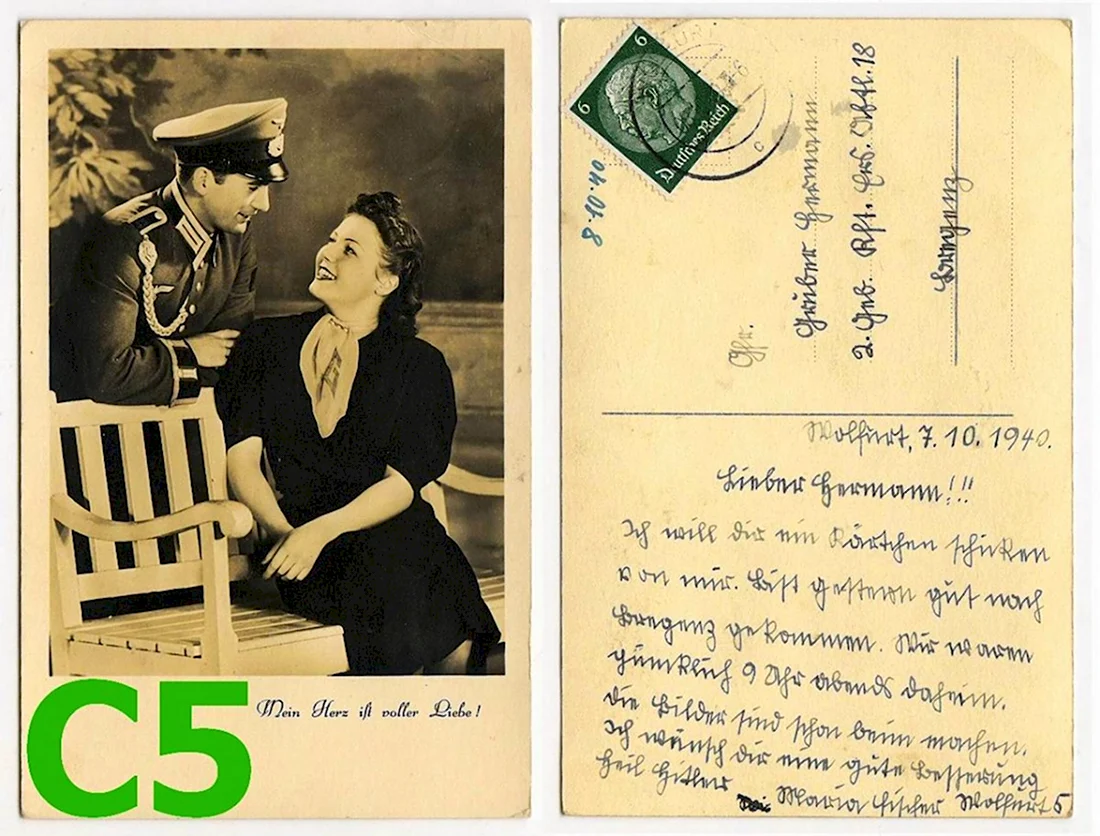 Mein Herz ist voller Liebe!
C5
6
6
Deutsches Reich
C
8.10.40
Gfr.
Gruber Hermann
2. Geb. Rft. Ers. Abtl. 18
Bregenz
Wolfurt, 7. 10. 1940.
Lieber Hermann!!!
Ich will dir ein Kärtchen schicken
von mir. Bist gestern gut nach
Bregenz gekommen. Wir waren
9 Uhr abends daheim.
die Bilder sind schon beim machen.
Ich wünsch dir eine gute Besserung
Heil Hitler
Maria Fischer Wolfurt 5